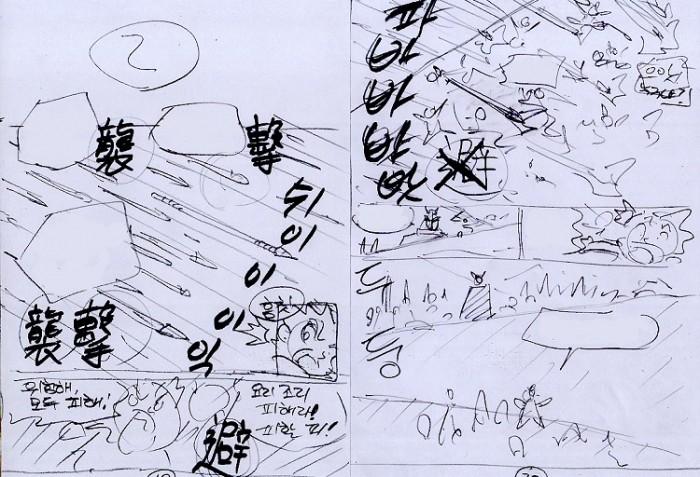 2
襲 擊
쉬
이
이
이
익
襲擊
위험해,
모두 피해!
요리 조리
피해라!
피할 피!
避
파
바
바
바
밧
避
두
둥